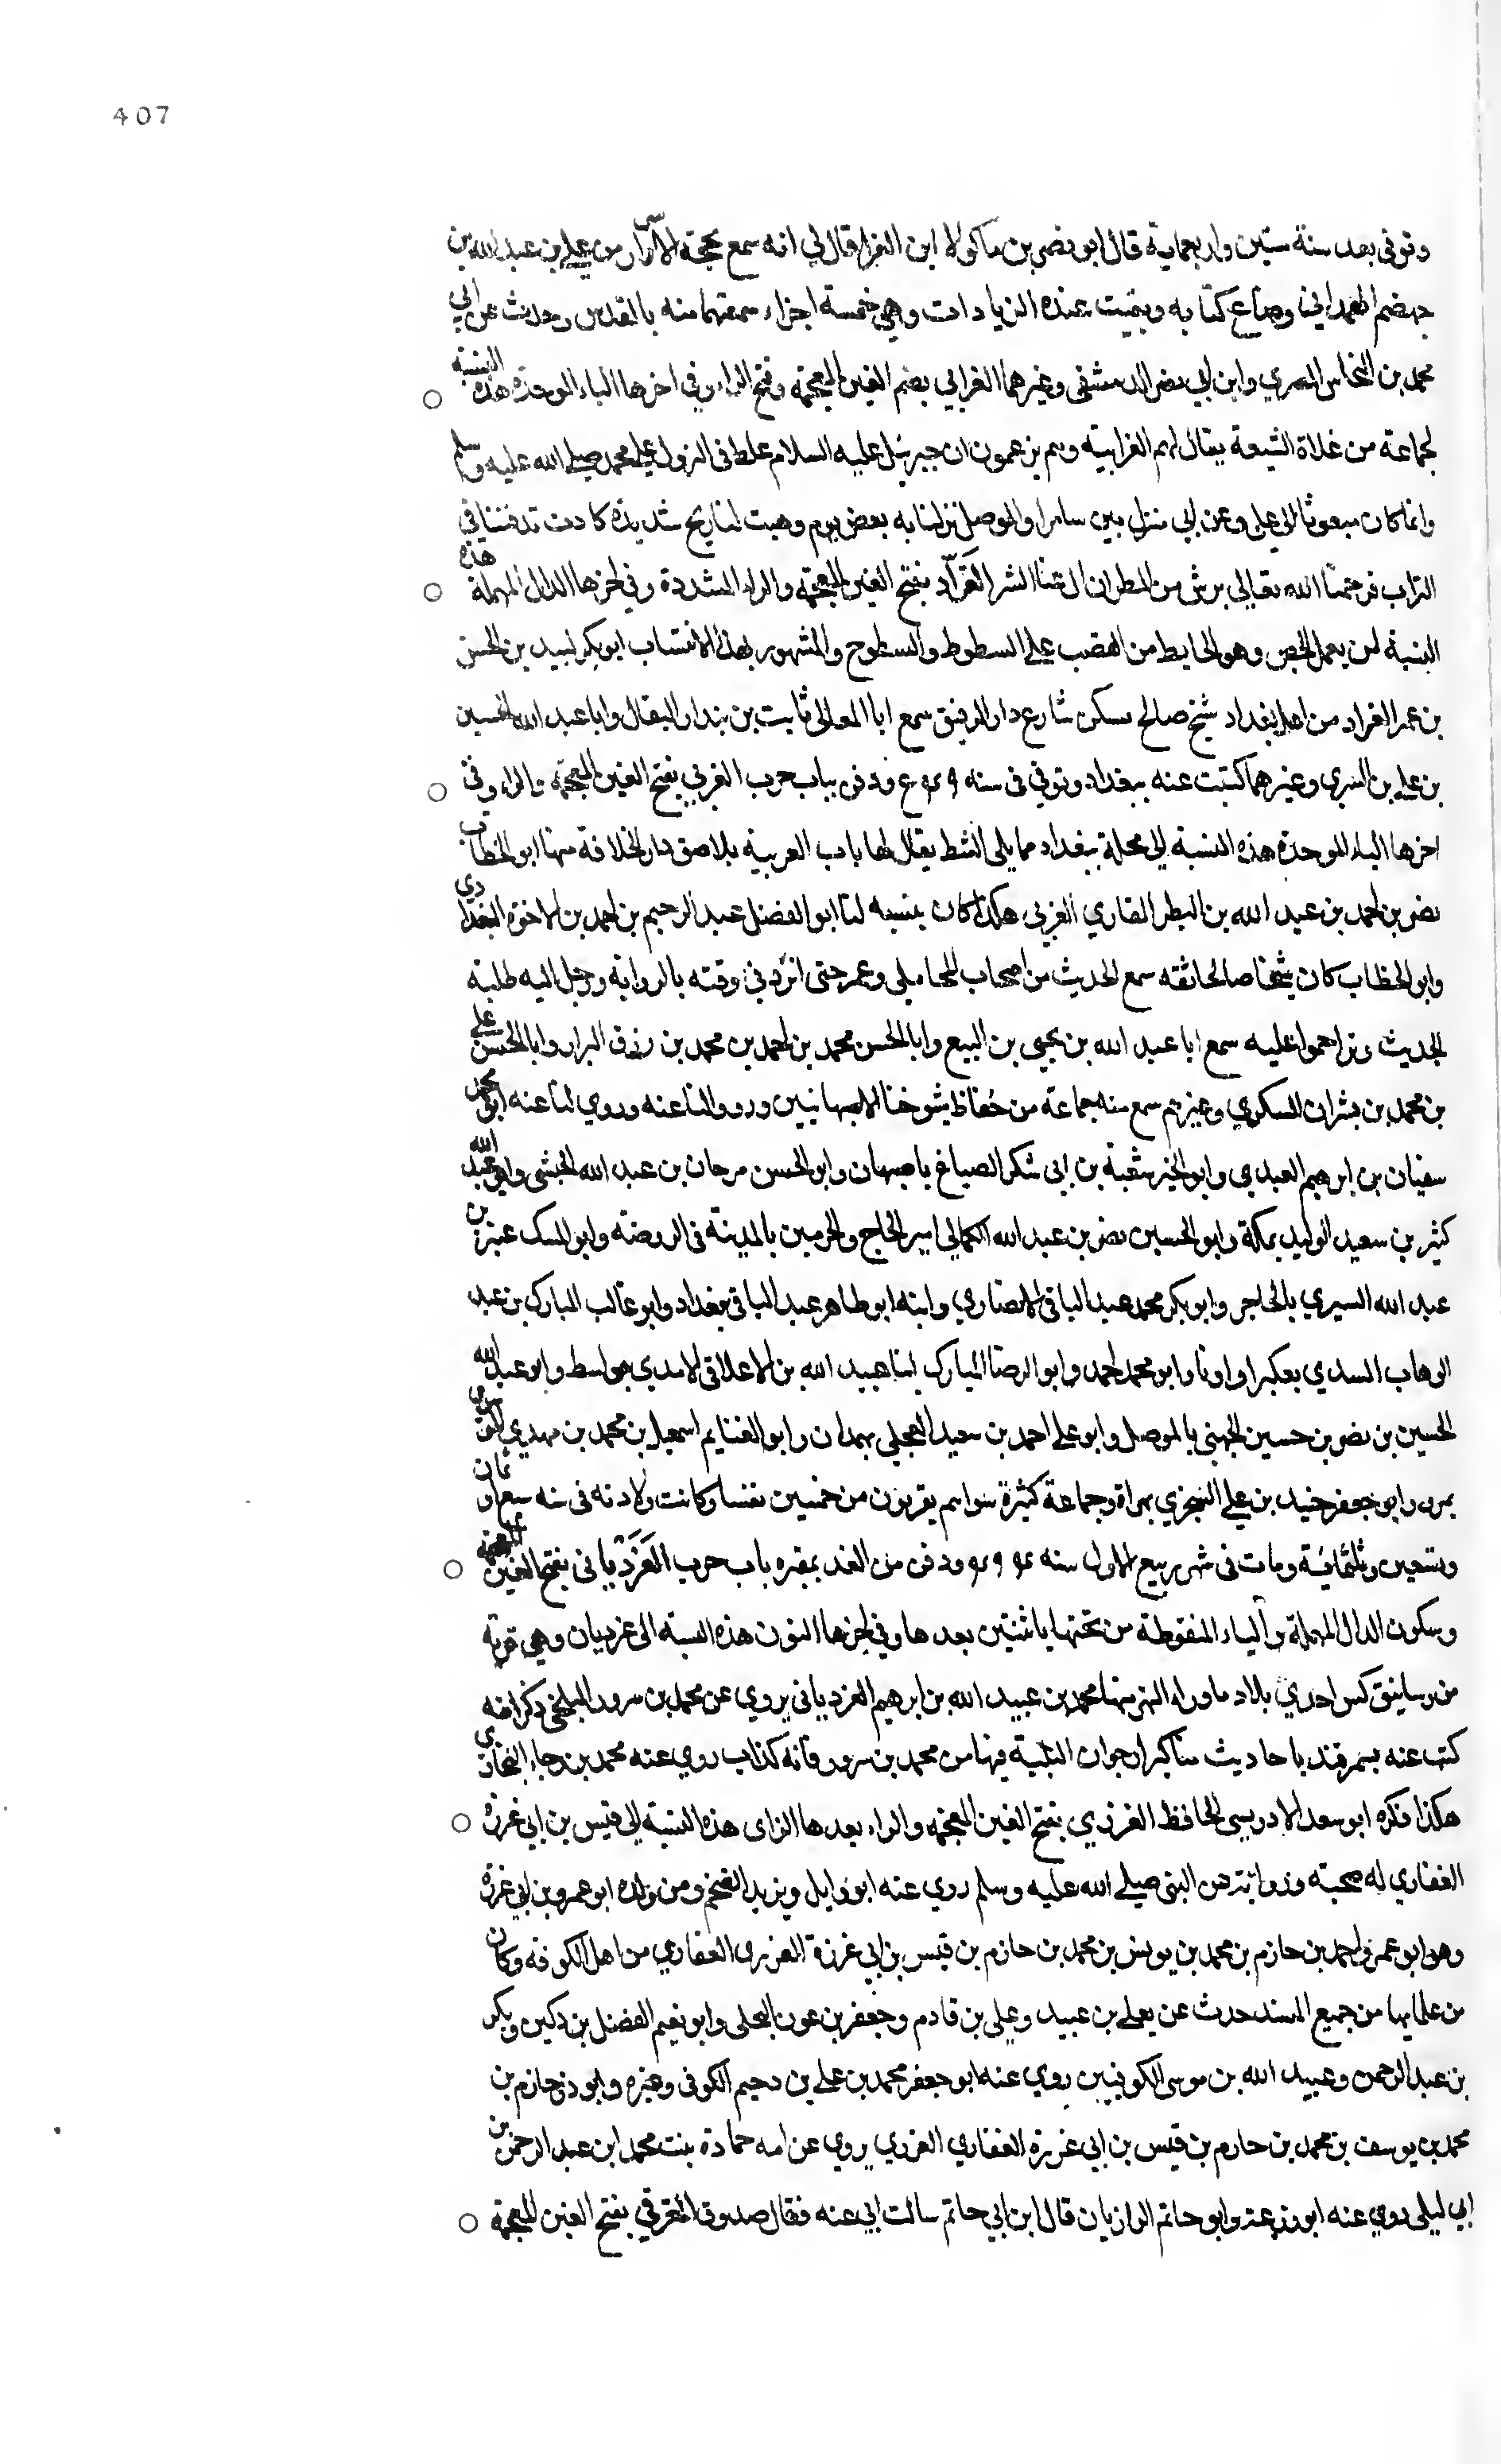 407
وتوفى بعد سنة ستين واربعماية قال ابو نصر بن ماكولا ابن الغرا قال لي انه سمع بهجة الاسرار من علي بن عبد الله بن
جهضم الهمداني وضاع كتابه وبقيت عنده الزيادات وهي خمسة اجزاء سمعتها منه بالقدس وحدث عن ابي
محمد بن النحاس المصري وابن ابي نصر الدمشقى وغيرهما الغرابي بضم الغين المعجمة وفتح الراء وفي اخرها الباء الموحدة هذه النسبة
لجماعة من غلاة الشيعة يقال لهم الغرابية وهم يزعمون ان جبرئيل عليه السلام غلط فى النزول على محمد صلى الله عليه وسلم
وانما كان مبعوثا الى علي وعن ابي منزل بين سامرا والموصل نزلنا به بعض يوم وهبت لنا ريح شديدة كادت تدفننا في
التراب فرحمنا الله تعالى برش من المطر ان القينا الشر الغَرّاد بفتح الغين المعجمة والراء المشددة وفي اخرها الدال المهملة هذه
النسبة لمن يعمل الخص وهو الحايط من القصب على السطوط والسطوح والمشهور بهذا الانتساب ابو بكر لبيد بن الحسن
بن عمر الغراد من اهل بغداد شيخ صالح سكن شارع دار الرقيق سمع ابا المعالى ثابت بن بندار البقال وابا عبد الله الحسين
بن علي بن السري وغيرهما كتبت عنه ببغداد وتوفي فى سنه ودفن بباب حرب الغربي بفتح الغين المعجمة والراء وفى
اخرها الباء الموحدة هذه النسبة الى محلة ببغداد مما يلى الشط يقال لها باب الغربية يلاصق دار الخلافة منها ابو الخطاب
نصر بن احمد بن عبد الله بن البطر القاري الغربى هكذا كان ينسبه لنا ابو الفضل عبد الرحيم بن احمد بن الاخوة البغدادي
وابو الخطاب كان شيخا صالحا ثقه سمع الحديث من اصحاب المحاملى وعمر حتى انفرد في وقته بالرواية ورحل اليه طلبة
الحديث وتزاحموا عليه سمع ابا عبد الله بن يحيى بن البيع وابا الحسن محمد بن احمد بن محمد بن رزق البزار وابا الحسن علي
بن محمد بن بشران السكري وغيرهم سمع منه جماعة من حُفاظ شيوخنا الاصبهانيين ورووا لنا عنه وروي لنا عنه ابو محمد
سفيان بن ابرهيم العبدي وابو الخير شعبة بن ابى شكر الصباغ باصبهان وابو الحسن مرجان بن عبد الله الحبشى وابو عبد الله
كثير بن سعيد الوليد بمكة وابو الحسين نصر بن عبد الله الكمالي امير الحاج والحرمين بالمدينة فى الروضة وابو المسك عنبر بن
عبد الله السيري بالحاجر وابو بكر محمد عبد الباقى الانصاري وابنه ابو طاهر عبد الباقى ببغداد وابو غالب المبارك بن عبد
الوهاب السدي بعكبرا واوانا وابو محمد احمد وابو الرضا المبارك ابنا هبيد الله بن الاعلاقى الامدي بواسط وابو عبد الله
الحسين بن نصر بن حسين الجهنى بالموصل وابو علي احمد بن سعيد العجلى بهمدان وابو الغنايم اسمعيل بن محمد بن مهدي
بمرو وابو جعفر حنيد بن علي السجزي بهراة وجماعة كثيرة سواهم يقربون من خمسين نفسا وكانت ولادته فى سنه سبع او ثمان
وتسعين وثلثمائة ومات فى شهر ربيع الاول سنه ودفن من الغد بمقبره باب حرب الغَزَدْيانى بفتح الغين المعجمة
وسكون الدال المهملة والياء المنقوطة من تحتها باثنتين بعدها وفي اخرها النون هذه النسبة الى غزديان وهي قرية
من رساتيق كس احدي بلاد ما وراء النهر منها محمد بن عبيد الله بن ابرهيم الغزديانى يروي عن محمد بن سرور البلخى ذكر انه
كتب عنه بسمرقند باحاديث مناكير ارجوان البلية فيها من محمد بن سرور فانه كذاب روي عنه محمد بن رجاء البخاري
هكذا ذكره ابو سعد الادريسى الحافظ الغرزي بفتح الغين المعجمة والراء بعدها الزاى هذه النسبة الى قيس بن ابي غرزة
الغفاري له صحبة ورواية عن النبى صلى الله عليه وسلم روي عنه ابو وايل ويزيد الضخم ومن ولده ابو عمرو بن ابي غرزة
وهو ابو عمرو احمد بن حازم بن محمد بن يونس بن محمد بن حازم بن قيس بن ابي غرزة الغرزى الغفاري من اهل الكوفه وكان
من علمايها من جميع المسند حدث عن يعلى بن عبيد وعلي بن قادم وجعفر بن عون البجلى وابو نعيم الفضل بن دكين وبكر
بن عبد الرحمن وعبيد الله بن موسى الكوفيين روي عنه ابو جعفر محمد بن علي بن دحيم الكوفى وغيره وابو ذر حازم بن
محمد بن يوسف بن محمد بن حازم بن قيس بن ابي غرزة الغفاري الغرزي يروي عن امه حمادة بنت محمد ابن عبد الرحمن بن
ابي ليلى روي عنه ابو زرعة وابو حاتم الرازيان قال ابن ابي حاتم سالت ابي عنه فقال صدوق الغرقي بفتح الغين المعجمة